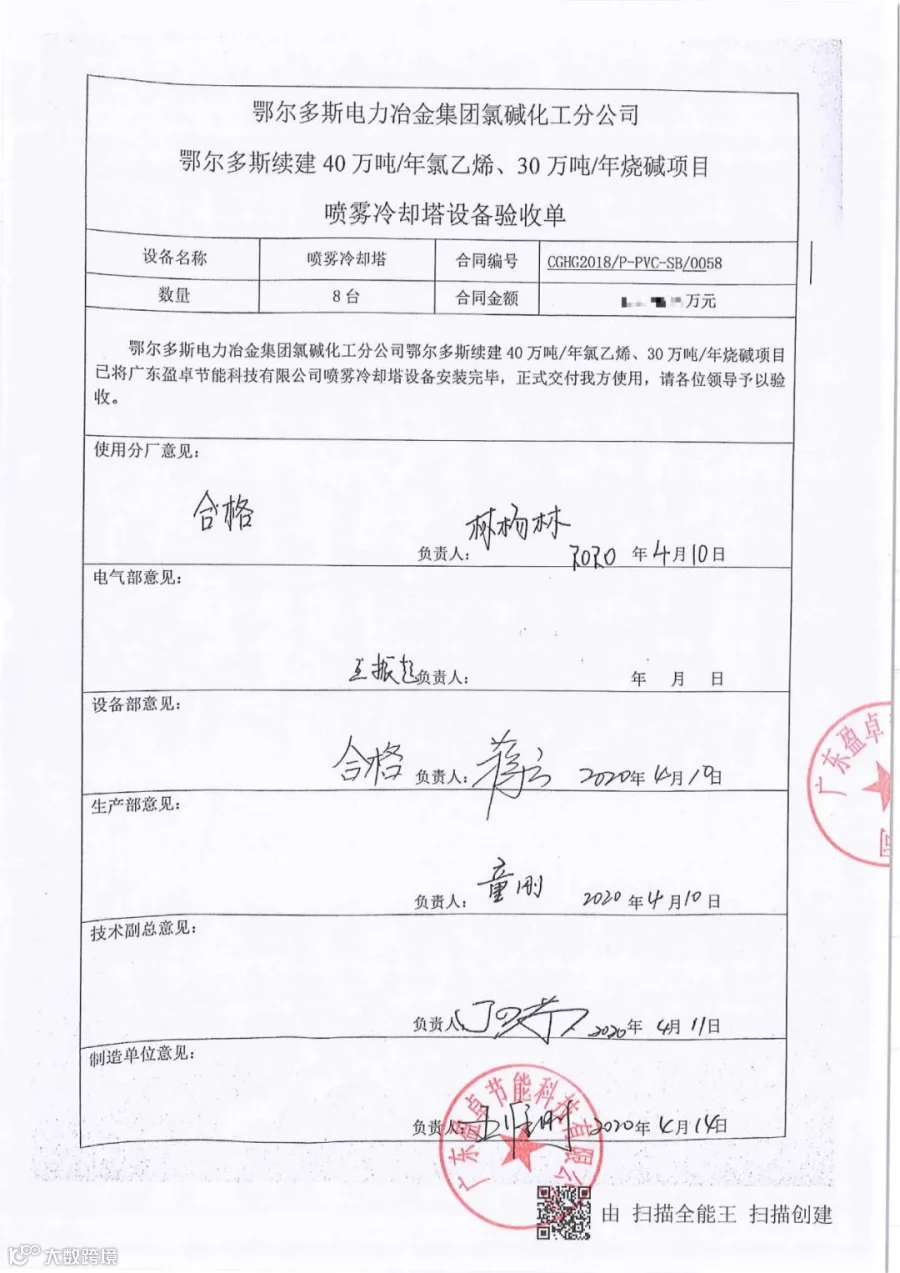 鄂尔多斯电力冶金集团氯碱化工分公司
鄂尔多斯续建 40 万吨/年氯乙烯、30 万吨/年烧碱项目
喷雾冷却塔设备验收单
设备名称 喷雾冷却塔 合同编号 CGHG2018/P-PVC-SB/0058
数量 8 台 合同金额 万元
鄂尔多斯电力冶金集团氯碱化工分公司鄂尔多斯续建 40 万吨/年氯乙烯、30 万吨/年烧碱项目
已将广东盈卓节能科技有限公司喷雾冷却塔设备安装完毕，正式交付我方使用，请各位领导予以验
收。
使用分厂意见：
合格
负责人： 林杨林 2020 年 4 月 10 日
电气部意见：
王振彪 负责人： 年 月 日
设备部意见：
合格 负责人： 2020 年 4 月 10 日
生产部意见：
负责人： 童刚 2020 年 4 月 10 日
技术副总意见：
负责人 2020 年 4 月 11 日
制造单位意见：
负责人： 2020 年 4 月 14 日
广东盈卓节能科技有限公
广东盈卓
司
由 扫描全能王 扫描创建
大数跨境